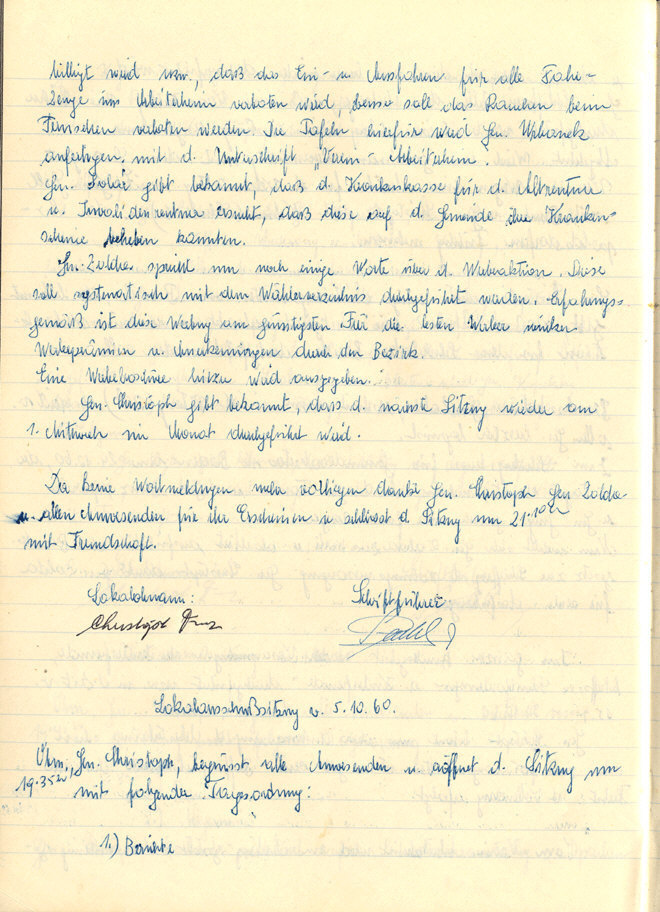 billigt wird usw., daß das Ein- u. Ausfahren für alle Fahr-
zeuge ins Arbeiterheim verboten wird, ebenso soll das Rauchen beim
Fernsehen verboten werden. Die Tafeln hierfür wird Gen. Urbanek
anfertigen mit d. Unterschrift "Verein - Arbeiterheim".
Gen. gibt bekannt, daß d. Krankenkasse für d. Altrentner
u. Invalidenrentner ersucht, daß diese auf d. Gemeinde ihre Kranken-
scheine beheben könnten.
Gen. Zolda spricht nun noch einige Worte über d. Werbeaktion. Diese
soll systematisch mit dem Wählerverzeichnis durchgeführt werden. Erfahrungs-
gemäß ist diese Werbung am günstigsten. Für die besten Werber winken
Werbeprämien u. Anerkennungen durch den Bezirk.
Eine Werbebroschüre hiezu wird ausgegeben.
Gen. Christoph gibt bekannt, dass d. nächste Sitzung wieder am
1. Mittwoch im Monat durchgeführt wird.
Da keine Wortmeldungen mehr vorliegen dankt Gen. Christoph Gen. Zolda
u. allen Anwesenden für ihr Erscheinen u. schliesst d. Sitzung um 21.10 Uhr
mit Freundschaft.
Lokalobmann: Schriftführer:
Christoph Franz
Lokalausschußsitzung v. 5.10.60.
Obm., Gen. Christoph, begrüsst alle Anwesenden u. eröffnet d. Sitzung um
19.35 Uhr mit folgender Tagesordnung:
1.) Berichte